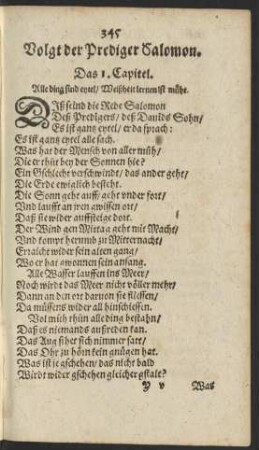 345
Volgt der Prediger Salomon.
Das 1. Capitel.
Alle ding sind eytel / Weißheit lernen ist mühe.
Diß seind die Rede Salomon
Deß Predigers / deß Dauids Sohn /
Es ist gantz eytel / er da sprach:
Es ist gantz eytel alle sach.
Was hat der Mensch von aller müh /
Die er thůt bey der Sonnen hie?
Ein Gschlecht verschwindt / das ander geht /
Die Erde ewiglich besteht.
Die Sonn geht auff / geht vnder fort /
Vnd laufft an jren gwissen ort /
Daß sie wider auffsteige dort.
Der Wind gen Mittag geht mit Macht /
Vnd kompt herumb zu Mitternacht /
Erraicht wider sein alten gang /
Wo er hat gwonnen sein anfang.
Alle Wasser lauffen ins Meer /
Noch wirdt das Meer nicht völler mehr /
Dann an den ort daruon sie fliessen /
Da müssens wider all hinschiessen.
Vol müh thůn alle ding bestahn /
Daß es niemands außreden kan.
Das Aug sihet sich nimmer satt /
Das Ohr zu hörn kein gnügen hat.
Was ist je gschehen / das nicht bald
Wirdt wider gschehen gleicher gstalt?
Y v Was